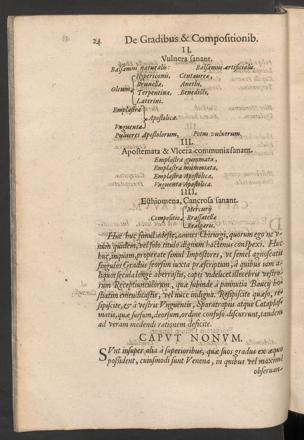 24 De Gradibus & Compositionib.
II.
Vulnera sanant.
Balsami naturalis: Balsami artificialis.
Hypericonis, Centaureæ,
Prunellæ, Anethi,
Oleum Terpentinæ, Benedicti,
Laterini.
Emplastra
Apostolica.
Vnguenta
Pulveres Apostolorum, Potus vulnerum.
III.
Apostemata & Vlcera communia sanant.
Emplastra gummata,
Emplastra mumiata,
Emplastra Apostolica,
Vnguenta Apostolica.
IIII.
Esthiomena, Cancrosa sanant.
Mercurij
Compositio Brassatella
Realgaris.
Huc huc simul adeste, omnes Chirurgi, quorum ego ne vnum
quidem, vel solo titulo dignum hactenus conspexi. Huc
huc, inquam, properate simul Impostores, ut semel agnoscatis
singulos Gradus seorsim iuxta præscriptum, à quibus tam
aliquot secula longè aberrastis, capti videlicet illecebris vestrorum
Receptiunculorum, quæ subinde à
emendicastis, vel nuce indigna. Respiscite quæso, respiscite,
& à vestris Vnguentis, Sparatropis atque Cataplasmatis,
quæ sursum, deorsum, ordine confuso discurrunt, tandem
ad veram medendi rationem deficite.
CAPVT NONVM.
Sunt insuper alia à superioribus, quæ suos gradus ex æquo
possident, cuiusmodi sunt Venena, in quibus vel maximè
observan-